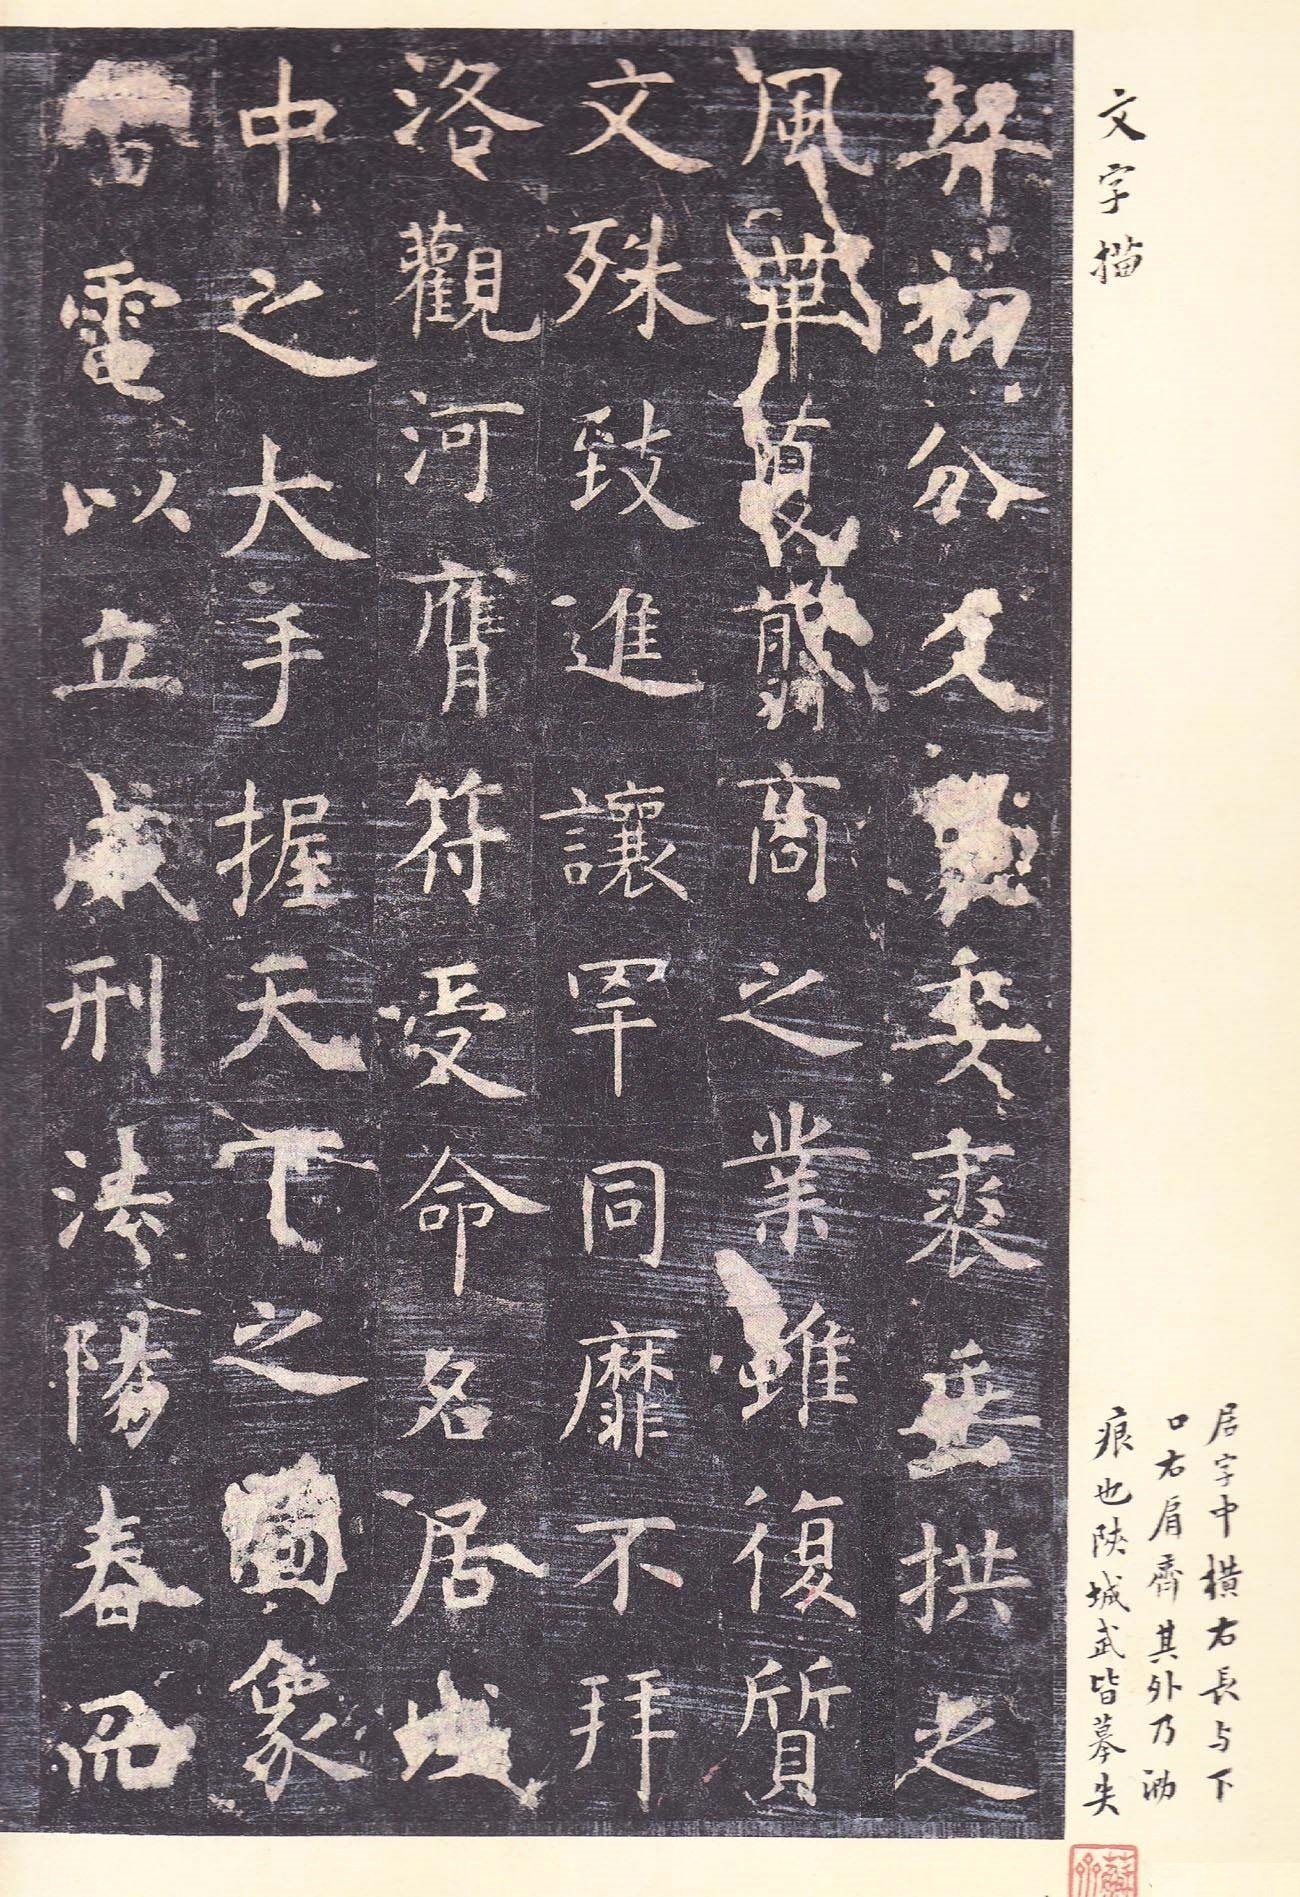 居字中橫右長与下
口右肩齊其外乃泐
痕也陝城武皆摹失
文字描
契初分爻象委裘垂拱之
風革夏翦商之業雖復質
文殊致進讓罕同靡不拜
洛觀河膺符受命名居域
中之大手握天下之圖象
雷電以立威刑法陽春而